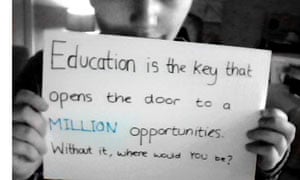 Education is the key that
opens the door to a
MILLION opportunities.
Without it, where would YOU be?